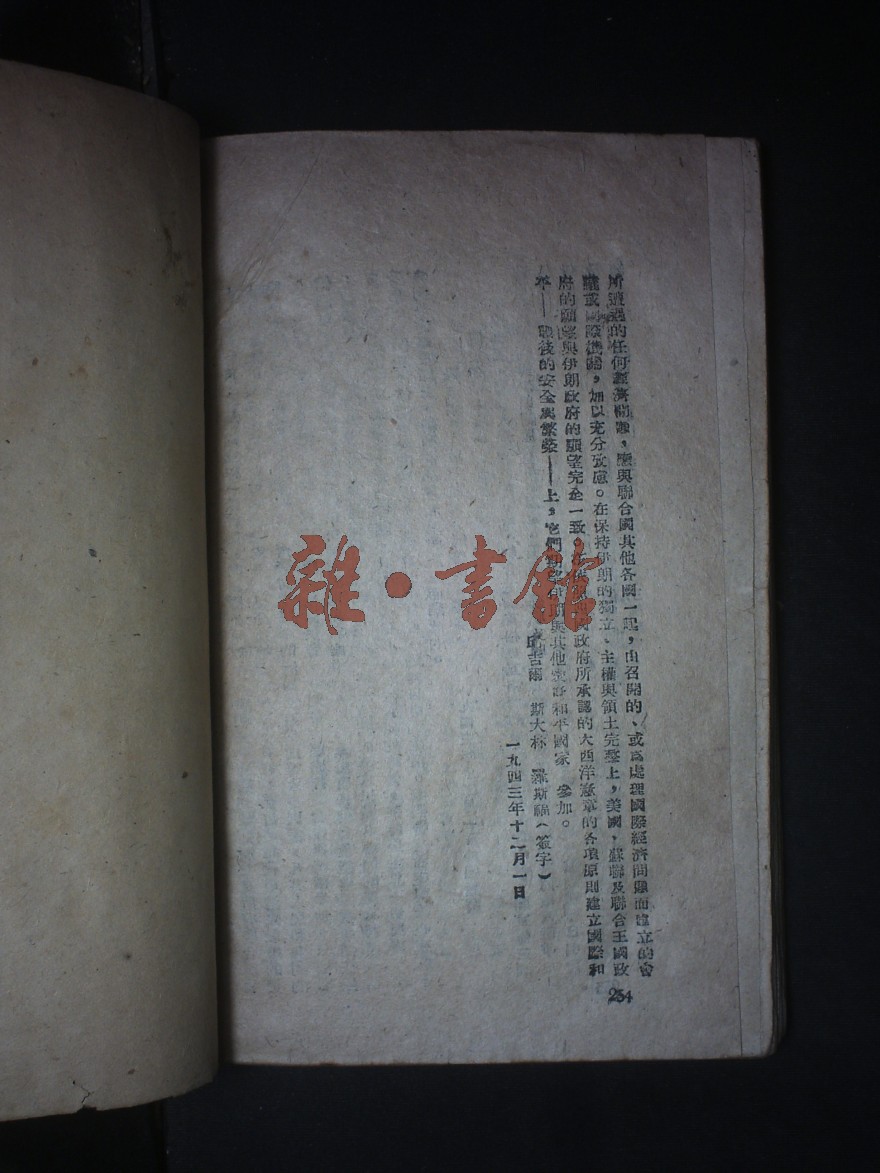 所遭遇的任何經濟問題，應與聯合國其他各國一起，由召開的、或爲處理國際經濟問題而建立的會
議或國際機關，加以充分攷慮。在保持伊朗的獨立、主權與領土完整上，美國、蘇聯及聯合王國政
府的願望與伊朗政府的願望完全一致。政府所承認的大西洋憲章的各項原則建立國際和
平——戰後的安全與繁榮——上，它們期望伊朗與其他愛好和平國家 參加。
邱吉爾 斯大林 羅斯福（簽字）
一九四三年十二月一日
254
雜·書館